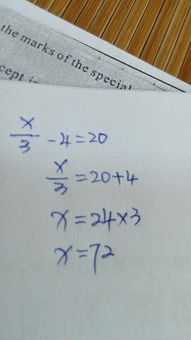 the marks of the special
cept i
x/3 -4=20
x/3 =20+4
x=24×3
x=72